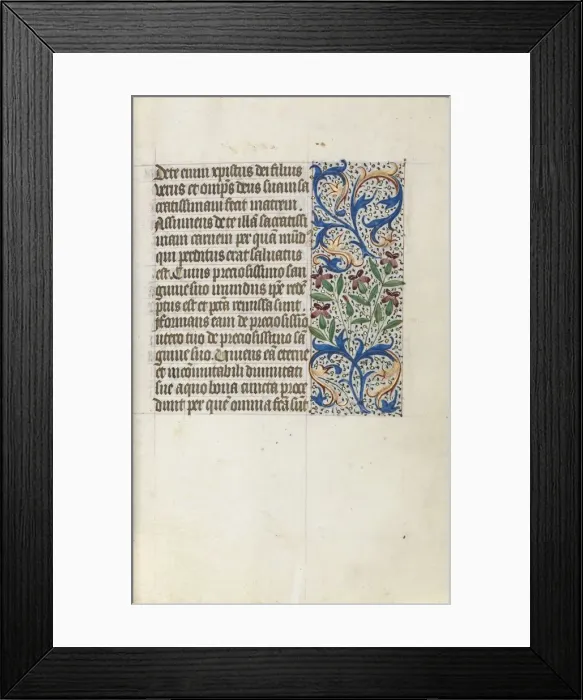 Dete enim xpistus dei filius
verus et omĩps deus suam sa
cratissimam fecit matrem.
Assumens de te illã sacratissi
mam carnem per quã mũd
qui perditus erat saluatus
est. Cuius preciosissimo san
guine suo mundus ipse redẽ
ptus est et pctã remissa sunt
formans eam de preciosissimo
utero tuo de preciosissimo sã
guine suo. Uniens eã eterne
et incõmutabili diuinitati
sue a quo bona cuncta proce
dunt per quẽ omnia fctã sũt